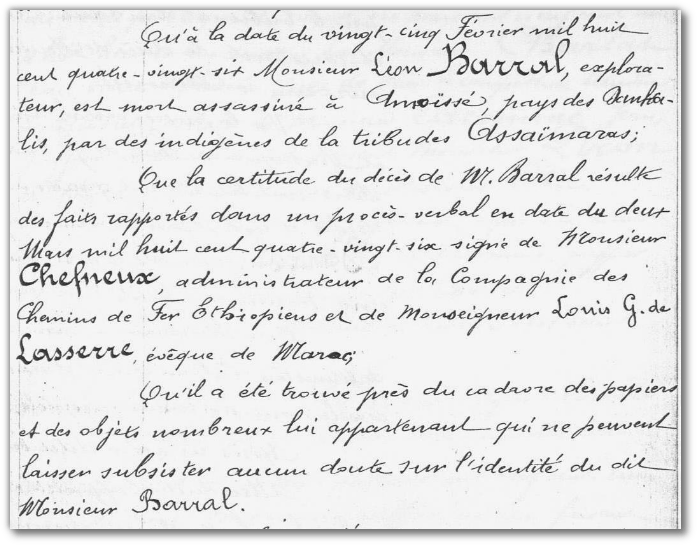 Qu'à la date du vingt-cinq Février mil huit
cent quatre-vingt-six Monsieur Léon Barral, explora-
teur, est mort assassiné à Amoïssa, pays des Danka-
lis, par des indigènes de la tribu des Assaïmaras;
Que la certitude du décès de M. Barral résulte
des faits rapportés dans un procès-verbal en date du deux
Mars mil huit cent quatre-vingt-six signé de Monsieur
Chefneux, administrateur de la Compagnie des
Chemins de Fer Ethiopiens et de Monseigneur Louis G. de
Lasserre, évêque de Maroc;
Qu'il a été trouvé près du cadavre des papiers
et des objets nombreux lui appartenant qui ne peuvent
laisser subsister aucun doute sur l'identité du dit
Monsieur Barral.